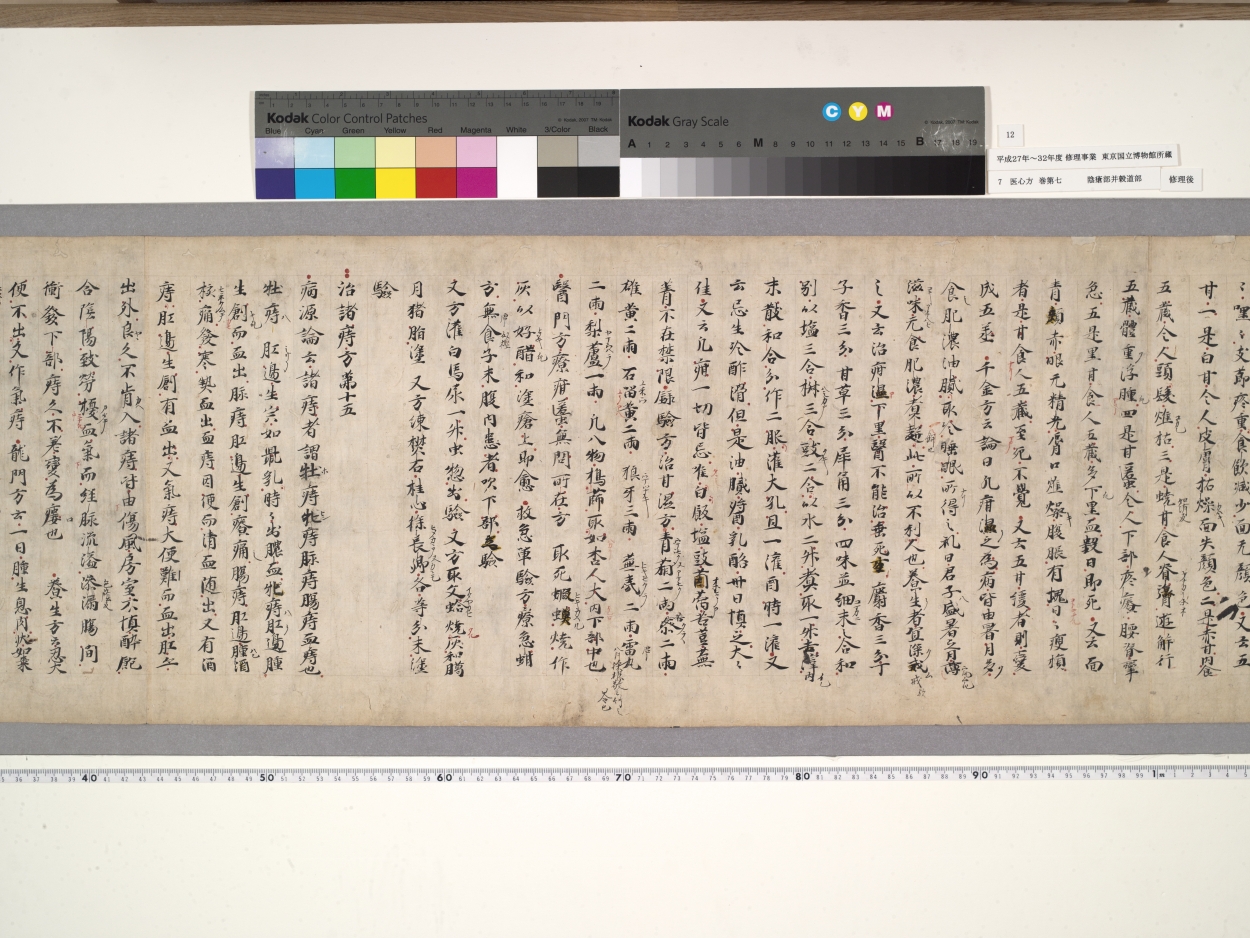 Kodak Color Control Patches
Blue Cyan Green Yellow Red Magenta White 3/Color Black
Kodak Gray Scale
C Y M
A 1 2 3 4 5 6 M 8 9 10 11 12 13 14 15 B 17 18 19
12
平成27年~32年度 修理事業 東京国立博物館所蔵
7 医心方 巻第七 陰瘡部并穀道部
修理後
支節疼重食飲減少面无顏色又云五
甘一是白甘令人皮膚枯燥面失顏色二是赤甘内食
五藏令人頭髮燋枯三是蟯甘食人脊膂遊解行
五藏體重浮腫四是甘䘌令人下部疼癢腰脊攣
急五是黑甘食人五藏多下黑血數日即死又云面
青赤眼无精光脣口燋燥腹脹有塊日瘦損
者是甘食人五藏至死不覺又云五甘緩者則變
成五蒸千金方云論曰凡疳濕之為病皆由暑月多
食肥濃油膩取冷眠睡所得之礼曰君子盛暑之月薄
滋味无食肥濃煮此所以不利人也養生者宜深戒
之又云治疳濕下黑醫不能治垂死方麝香三分丁
子香三分甘草三分犀角三分四味並細末合和
別以塩三合椒三合豉二合以水二升煮取一升去滓内
末散和合分作二服灌大孔旦一灌酉時一灌又
云忌生冷酢滑但是油膩醬乳酪卅日慎之大
佳又云凡疳一切皆忌唯白飯塩豉苜蓿苦苣蕪
菁不在禁限錄驗方治甘濕方青葙二兩二兩
雄黃二兩石留黃二兩狼牙三兩蕪荑二兩雷丸
二兩梨蘆一兩凡八物搗篩取如杏人大内下部中也
醫門方療疳䘌無問所在方取死蝦蟆燒作
灰以好醋和塗瘡上即愈救急單驗方療急蚶
方無食子末腹内患者吹下部驗
又方灌白馬尿一升虫惣出驗又方取文蛤燒灰和臈
月猪脂塗又方
驗
治諸痔方第十五
病源論云諸痔者謂牡痔牝痔脉痔腸痔血痔也
牡痔肛邊生宍如鼠乳時々出膿血牝痔肛邊腫
生創而血出脉痔肛邊生創癢痛腸痔肛邊腫
核痛發寒熱血出血痔因便而清血隨出又有酒
痔肛邊生創有血出又氣痔大便難而血出肛亦
出外良久不肯入諸痔皆由傷風房室不慎醉飽
合陰陽致勞擾血氣而經脉流溢滲漏腸間
衝發下部痔久不瘥變為瘻也養生方云忍大
便不出久作氣痔龍門方云一曰腫生息肉